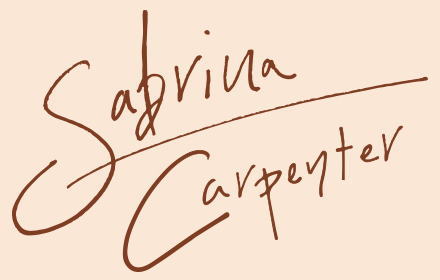 Sabrina
Carpenter